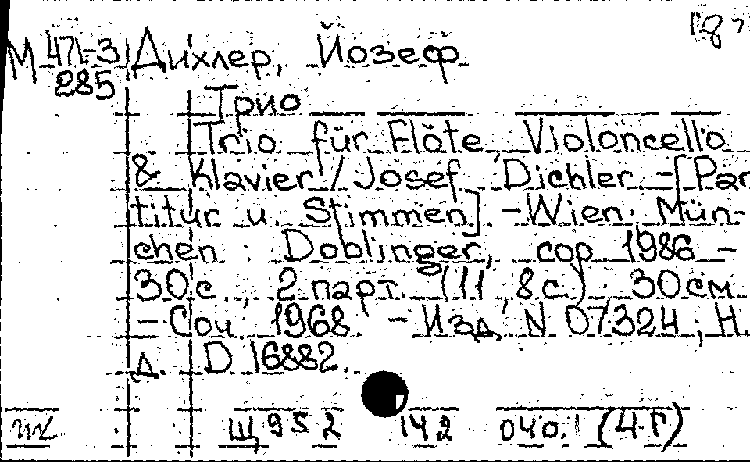 М 471-3 Дихлер, Йозеф
285
Трио
Trio für Flöte, Violoncello
& Klavier / Josef Dichler. - [Par
titur u. Stimmen]. - Wien; Mün-
chen : Doblinger, cop 1986 -
30 с., 2 парт. (11, 8 с.) ; 30 см
- Соч. 1968. - Изд. N 07324, Н.
д. D 16882.
Щ 952 142 040. (4.Г)